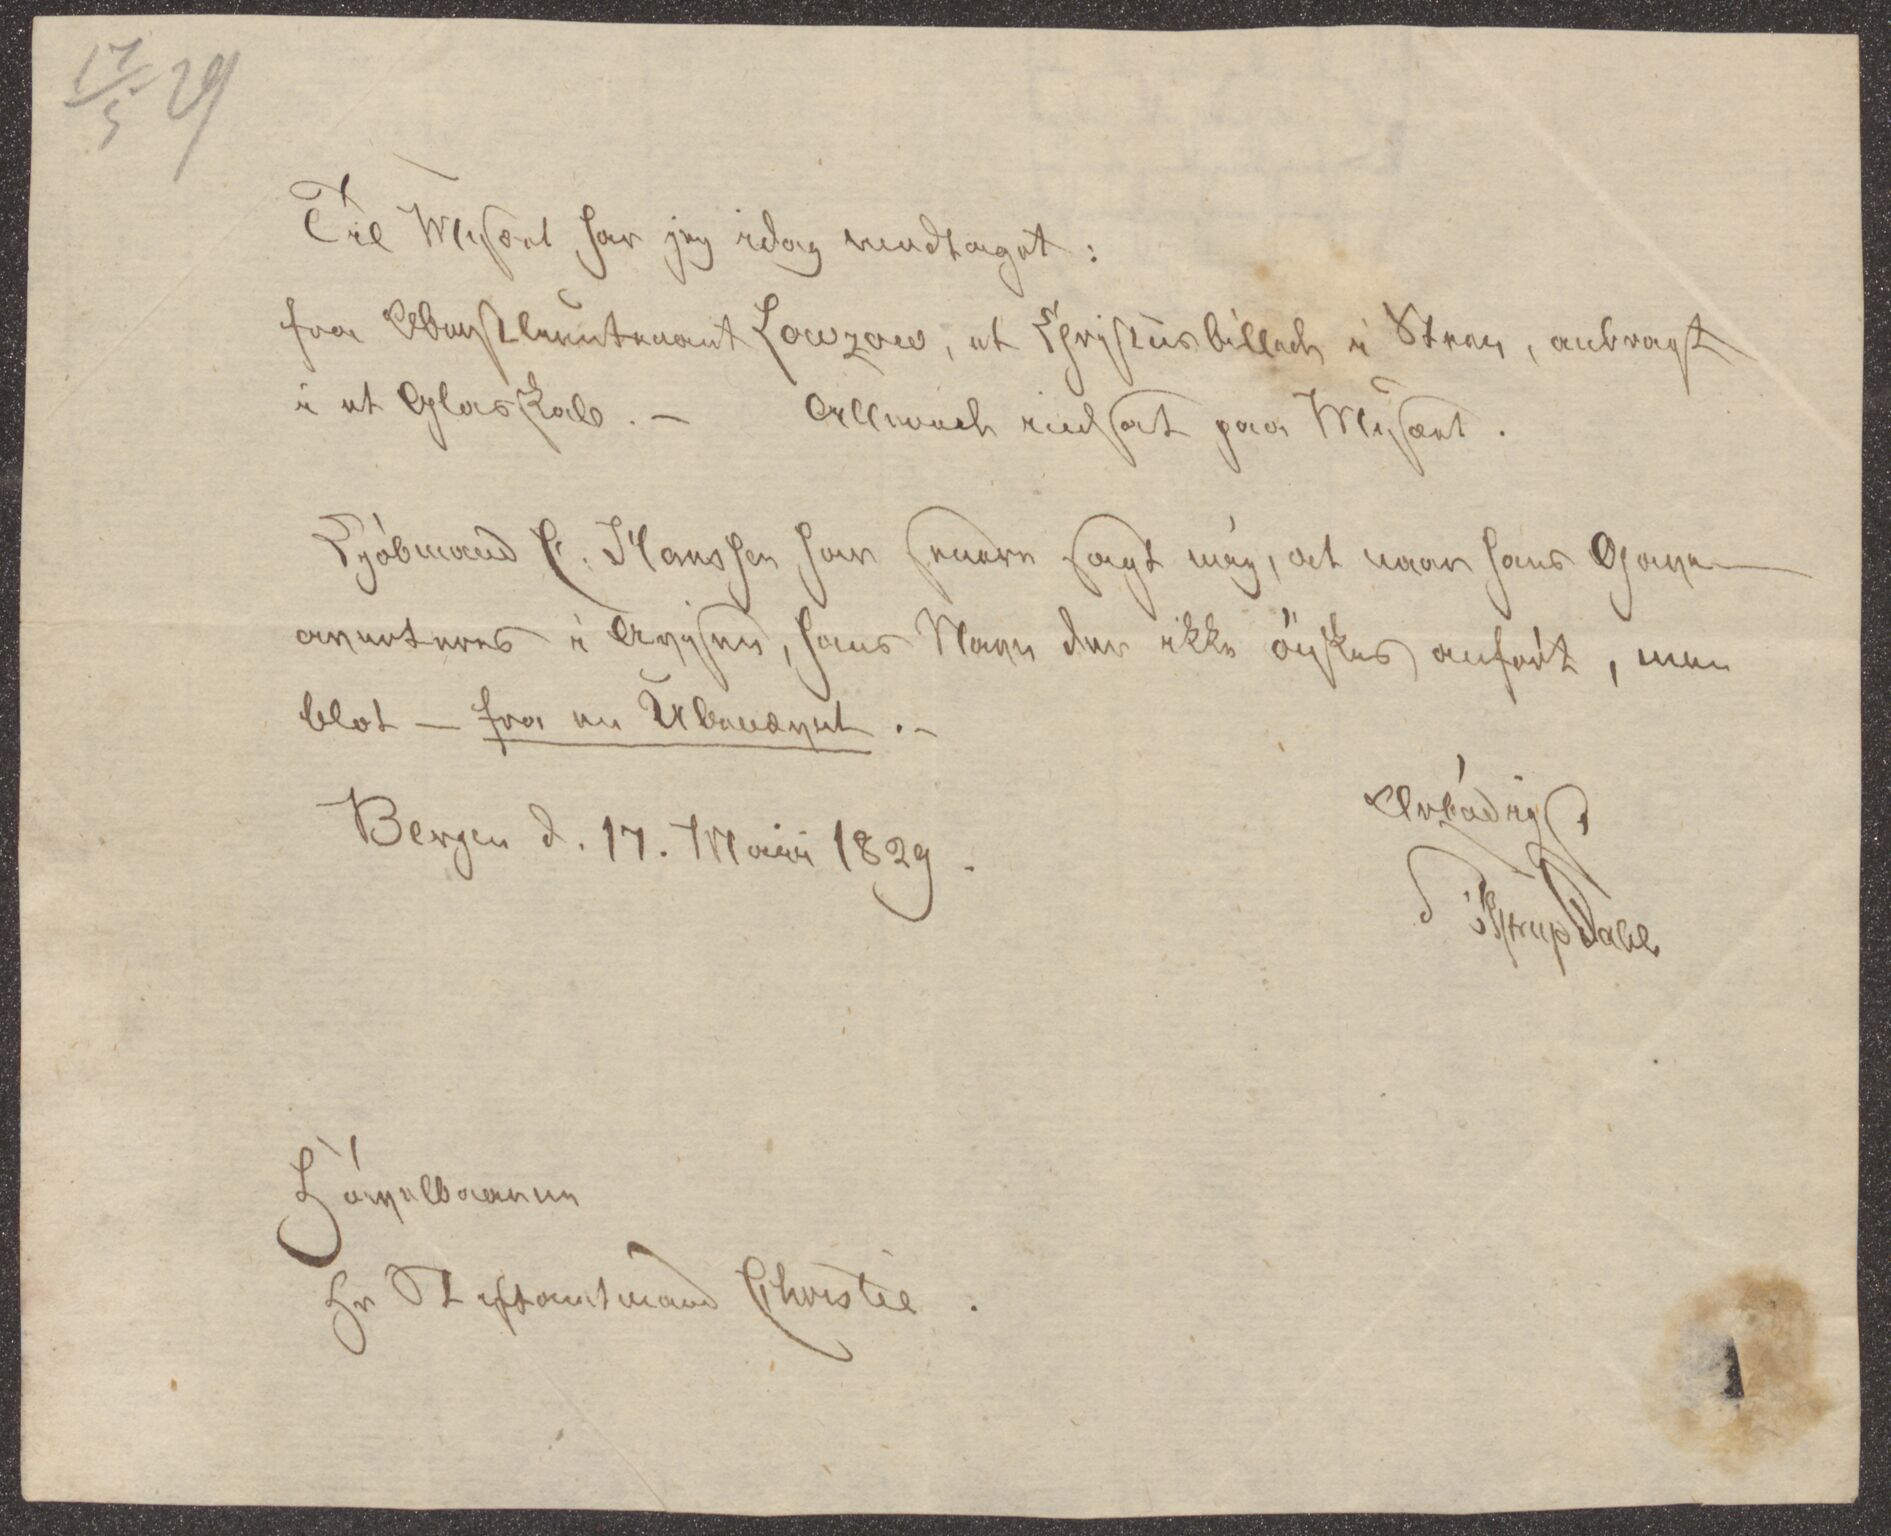 17/5 29
Til Museet har jeg idag modtaget:
fra Oberstleutenant Lowzow, et Christusbilled i Steen, anbragt
i et Glaskab. — Allereede indsat paa Museet.
Kjöbmand C. Hanssen har senere sagt mig, at naar hans Gave
averteres i Avisen, hans Navn der ikke önskes anfört, men
blot — fra en Ubenævnt. —
Bergen d. 17. Maii 1829.
Ærbödigst
Astrup Dahl
Höivelbaarne
Hr Stiftamtmand Christie.